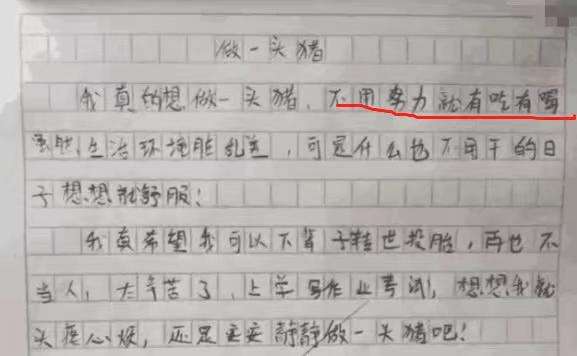 做一头猪
我真的想做一头猪，不用努力就有吃有喝
虽然生活环境脏乱差，可是什么也不用干的日
子想想就舒服！
我真希望我可以下辈子转世投胎，再也不
当人，太辛苦了，上学写作业考试，想想我就
头疼心烦，还是安安静静做一头猪吧！